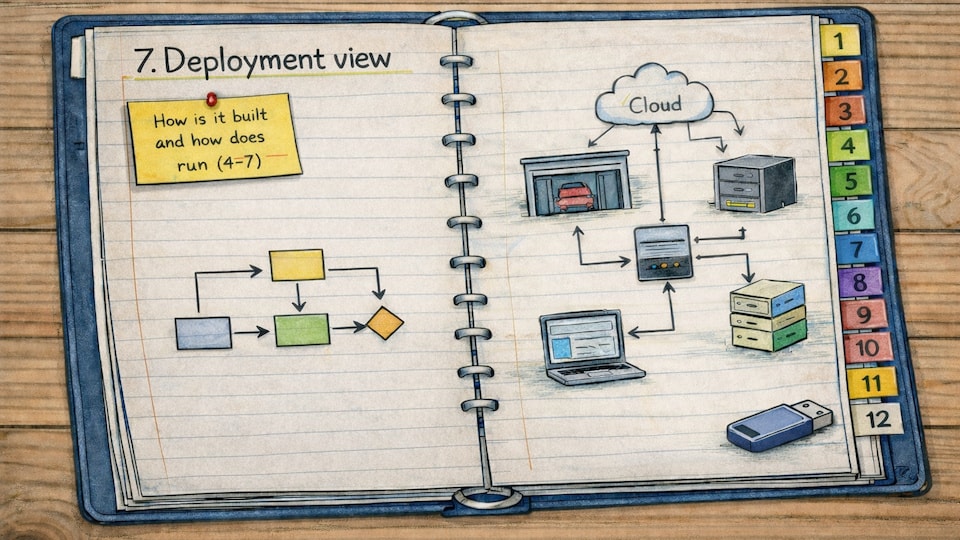 7. Deployment view
How is it built
and how does
run (4=7)
Cloud
1
2
3
4
5
6
7
8
9
10
11
12